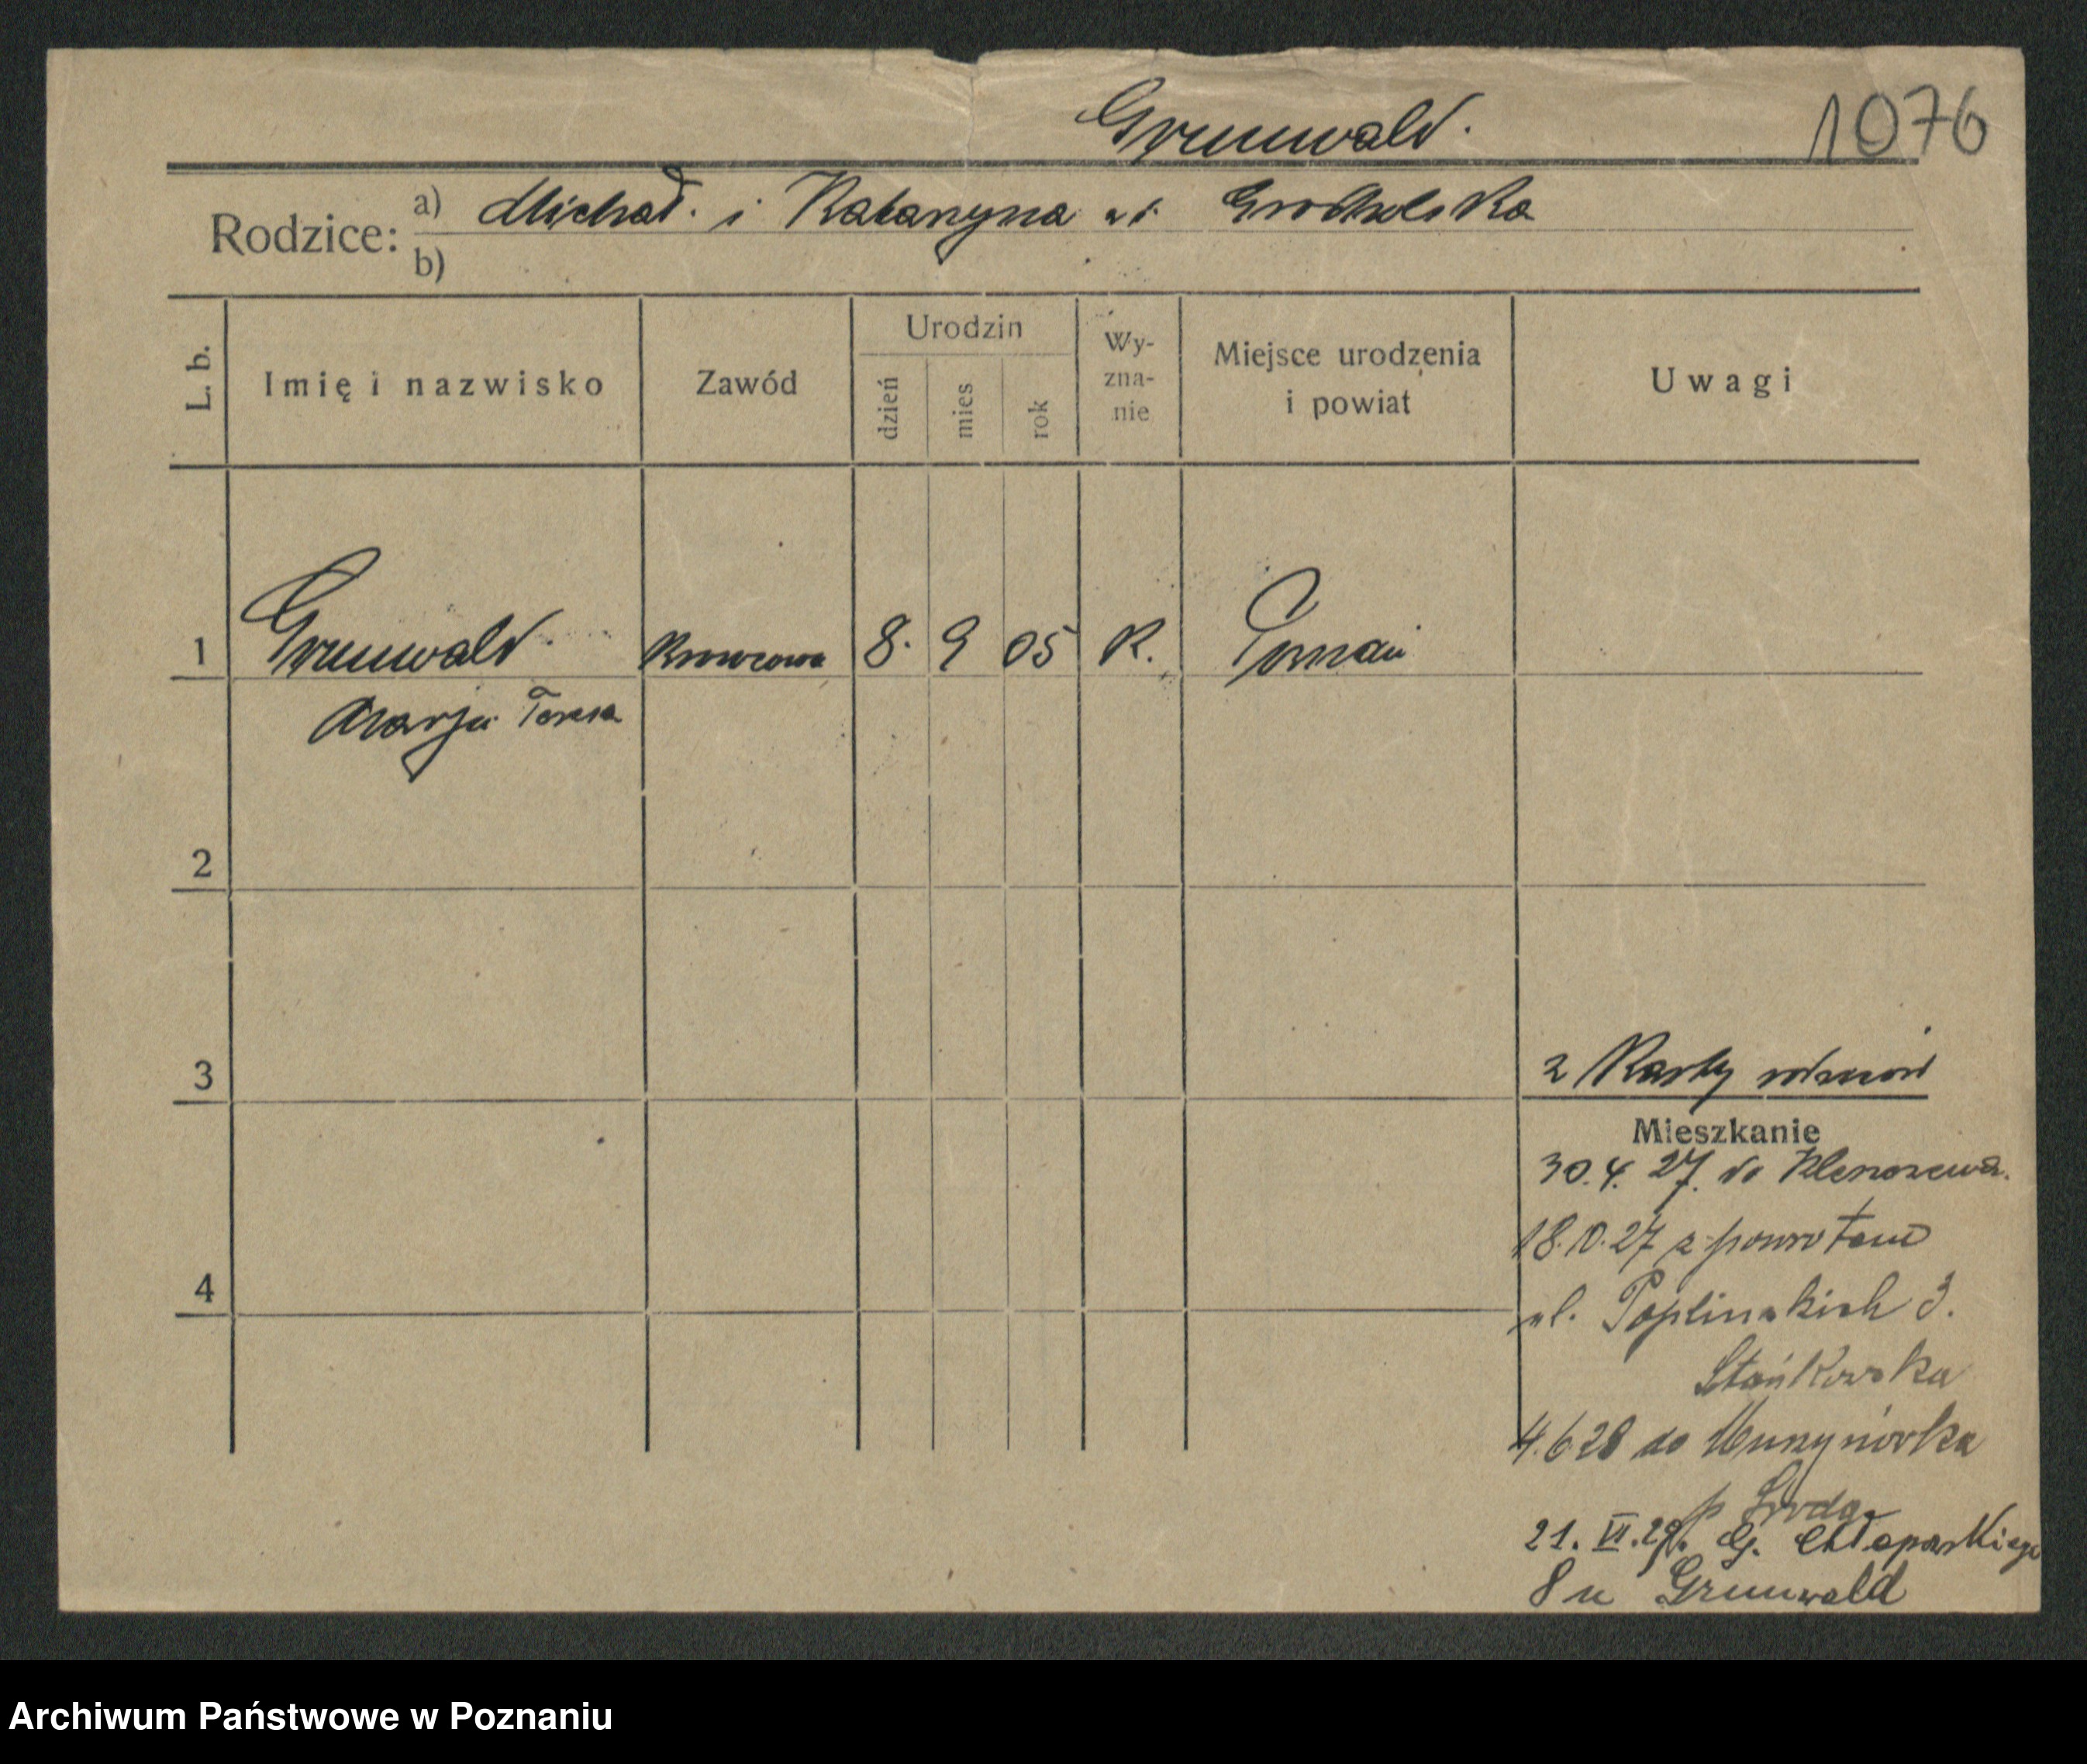 Grunwald.
1076
Rodzice: a) Michał. i Katarzyna
b)
L. b.
Imię i nazwisko
Zawód
Urodzin
dzień
mies
rok
Wy-
zna-
nie
Miejsce urodzenia
i powiat
Uwagi
1 Grunwald. Krawcowa 8. 9 05 K. Poznań
Marja Teresa
2
3
4
2 Karty
Mieszkanie
30.4.27. do
18.10.27 z powrotem
ul. Poplinskich 3.
Stańkowska
4.6 28 do
p Środa
21. VI.29. G. Chłapowskiego
8 u Grunwald
Archiwum Państwowe w Poznaniu